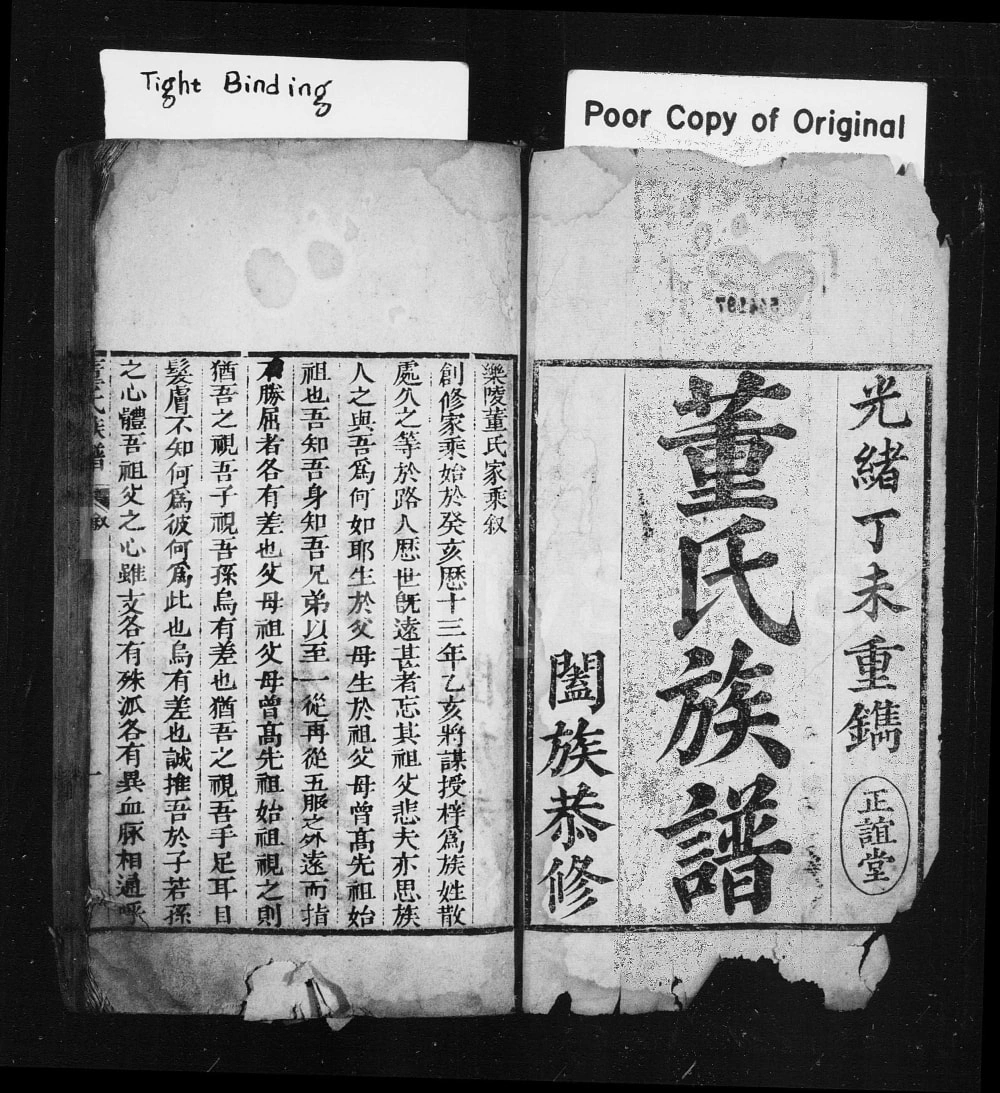 Tight Binding
Poor Copy of Original
光緒丁未重鐫
正誼堂
董氏族譜
闔族恭修
樂陵董氏家乘叙
創修家乘始於癸亥歷十三年乙亥將謀授梓爲族姓散
處久之等於路人歷世既遠甚者忘其祖父悲夫亦思族
人之與吾爲何如耶生於父母生於祖父母曾高先祖始
祖也吾知吾身知吾兄弟以至一從再從五服之外遠而指
不勝屈者各有差也父母祖父母曾高先祖始祖視之則
猶吾之視吾子視吾孫烏有差也猶吾之視吾手足耳目
髮膚不知何爲彼何爲此也烏有差也誠推吾於子若孫
之心體吾祖父之心雖支各有殊派各有異血脉相通呼
董氏族譜 叙 一